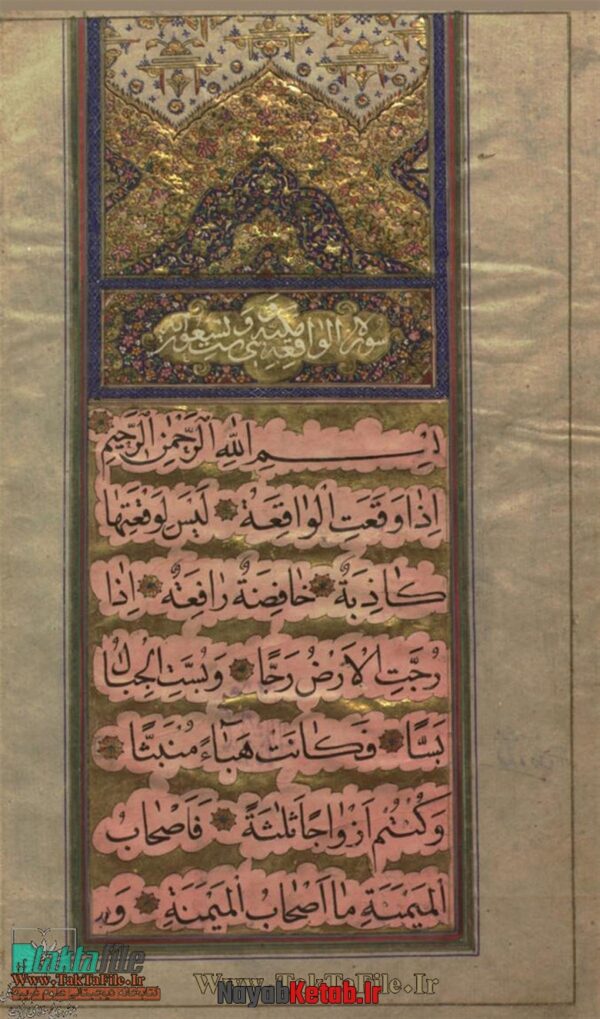 سورة الواقعة مكية وهى ست وتسعون آية
بِسْمِ اللهِ الرَّحْمٰنِ الرَّحِيْمِ
اِذَا وَقَعَتِ الْوَاقِعَةُ لَيْسَ لِوَقْعَتِهَا
كَاذِبَةٌ خَافِضَةٌ رَافِعَةٌ اِذَا
رُجَّتِ الْاَرْضُ رَجًّا وَبُسَّتِ الْجِبَالُ
بَسًّا فَكَانَتْ هَبَآءً مُنْبَثًّا
وَكُنْتُمْ اَزْوَاجًا ثَلٰثَةً فَاَصْحَابُ
الْمَيْمَنَةِ مَا اَصْحَابُ الْمَيْمَنَةِ وَ
taktafile
Www.TakTaFile.Ir
Www.TakTaFile.Ir
NayabKetab.Ir